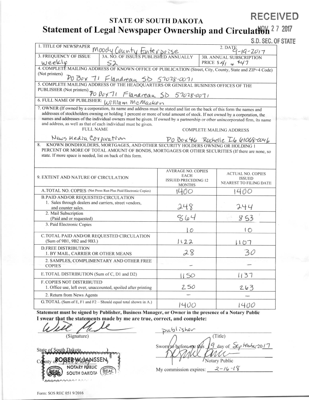 RECEIVED
NOV 27 2017
S.D. SEC. OF STATE
STATE OF SOUTH DAKOTA
Statement of Legal Newspaper Ownership and Circulation
1. TITLE OF NEWSPAPER
Moody County Enterprise
2. DATE
9-19-2017
3. FREQUENCY OF ISSUE
weekly
3A. NO. OF ISSUES PUBLISHED ANNUALLY
52
3B. ANNUAL SUBSCRIPTION PRICE
4. COMPLETE MAILING ADDRESS OF KNOWN OFFICE OF PUBLICATION (Street, City, County, State and ZIP+4 Code) (Not printers)
PO Box 71 Flandreau SD 57028-0071
5. COMPLETE MAILING ADDRESS OF THE HEADQUARTERS OR GENERAL BUSINESS OFFICES OF THE
PUBLISHER (Not printers)
PO Box 71 Flandreau SD 57028-0071
6. FULL NAME OF PUBLISHER:
William McMacken
7. OWNER (If owned by a corporation, its name and address must be stated and list on the back of this form the names and
addresses of stockholders owning or holding 1 percent or more of total amount of stock. If not owned by a corporation, the
names and addresses of the individual owners must be given. If owned by a partnership or other unincorporated firm, its name
and address, as well as that of each individual must be given).
FULL NAME
COMPLETE MAILING ADDRESS
News Media Corporation
PO Box 46 Rochelle IL 61068-0046
8. KNOWN BONDHOLDERS, MORTGAGES, AND OTHER SECURITY HOLDERS OWNING OR HOLDING 1
PERCENT OR MORE OF TOTAL AMOUNT OF BONDS, MORTGAGES OR OTHER SECURITIES (If there are none, so
state. If more space is needed, list on back of this form).
9. EXTENT AND NATURE OF CIRCULATION
AVERAGE NO. COPIES EACH ISSUED PRECEDING 12 MONTHS
ACTUAL NO. COPIES ISSUED NEAREST TO FILING DATE
A. TOTAL NO. COPIES (Net Press Run Plus Paid Electronic Copies)
1400
1400
B. PAID AND/OR REQUESTED CIRCULATION
1. Sales through dealers and carriers, street vendors,
and counter sales.
248
244
2. Mail Subscription
(Paid and or requested)
864
853
3. Paid Electronic Copies
10
10
C. TOTAL PAID AND/OR REQUESTED CIRCULATION
(Sum of 9B1, 9B2 and 9B3.)
1122
1107
D. FREE DISTRIBUTION
1. BY MAIL, CARRIER OR OTHER MEANS
28
30
2. SAMPLES, COMPLIMENTARY AND OTHER FREE
COPIES
E. TOTAL DISTRIBUTION (Sum of C, D1 and D2)
1150
1137
F. COPIES NOT DISTRIBUTED
1. Office use, left over, unaccounted, spoiled after printing
250
263
2. Return from News Agents
G. TOTAL (Sum of E, F1 and F2 - Should equal total shown in A.)
1400
1400
Statement must be signed by Publisher, Business Manager, or Owner in the presence of a Notary Public
I swear that the statements made by me are true, correct, and complete:
(Signature)
Publisher
(Title)
State of South Dakota
ROGER W JANSSEN
NOTARY PUBLIC
SOUTH DAKOTA
19 day of September 2017
Notary Public
My commission expires: 2-16-18